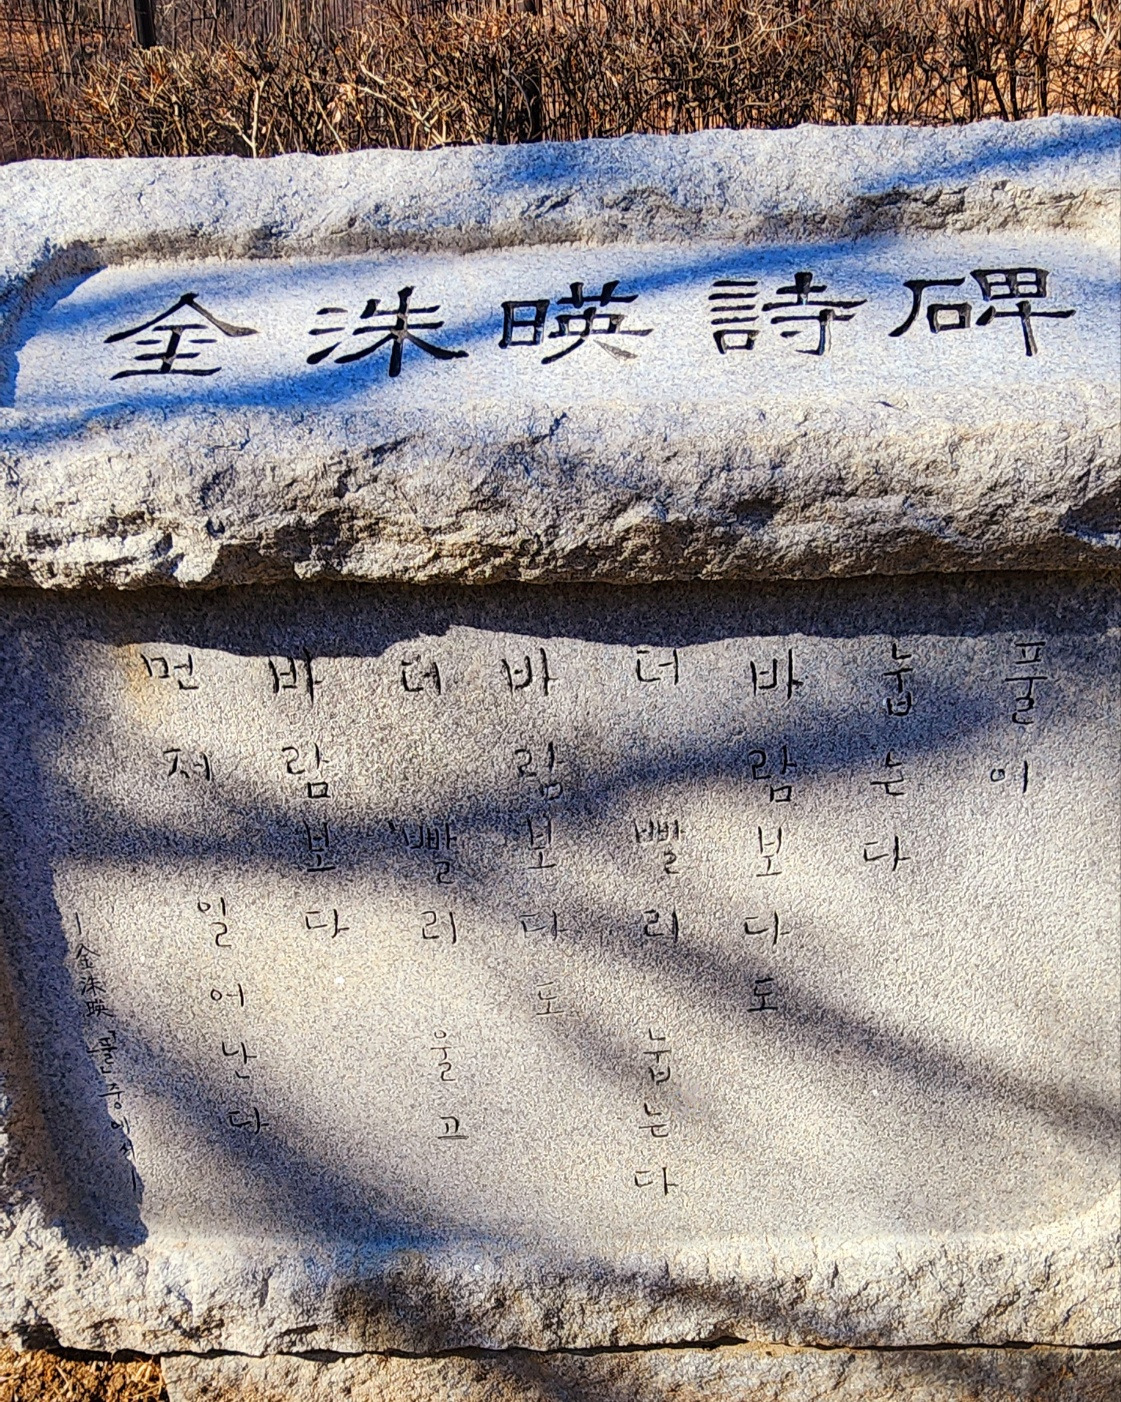 金洙暎詩碑
풀이
눕는다
바람보다도
더 빨리 눕는다
바람보다도
더 빨리 울고
바람보다
먼저 일어난다
―金洙暎 「풀」 중에서―